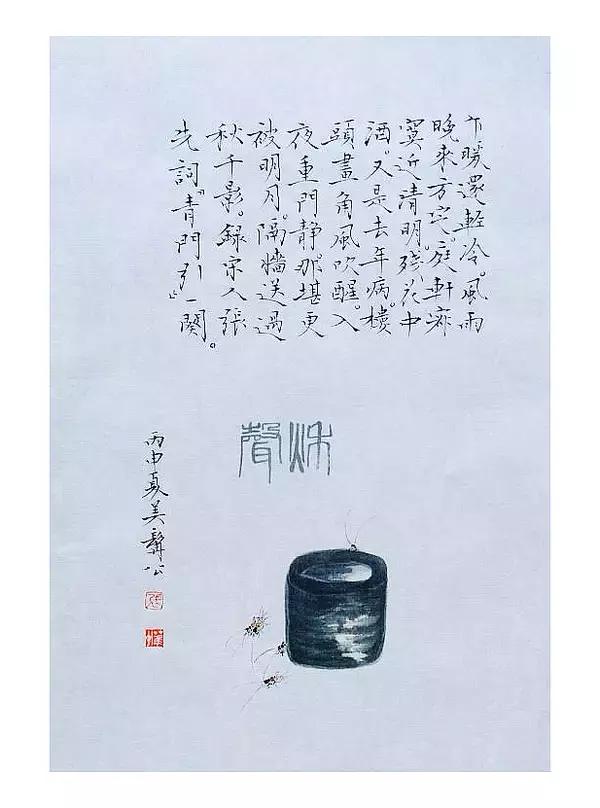 乍暖還輕冷。風雨
晚來方定。庭軒寂
寞近清明。殘花中
酒。又是去年病。樓
頭畫角風吹醒。入
夜重門靜。那堪更
被明月。隔牆送過
秋千影。錄宋人張
先詞『青門引』一闋。
秋聲
丙申夏美髯公